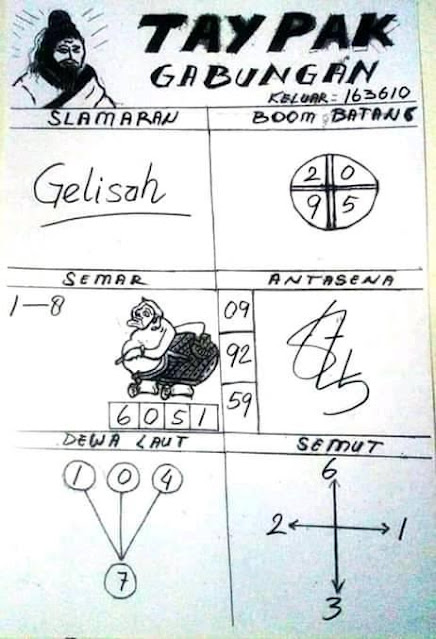 TAYPAK
GABUNGAN
KELUAR = 163610
SLAMARAN
BOOM BATANG
Gelisah
2 0
9 5
SEMAR
ANTASENA
1-8
09
92
59
6 0 5 1
DEWA LAUT
SEMUT
1 0 4
7
6
2 1
3